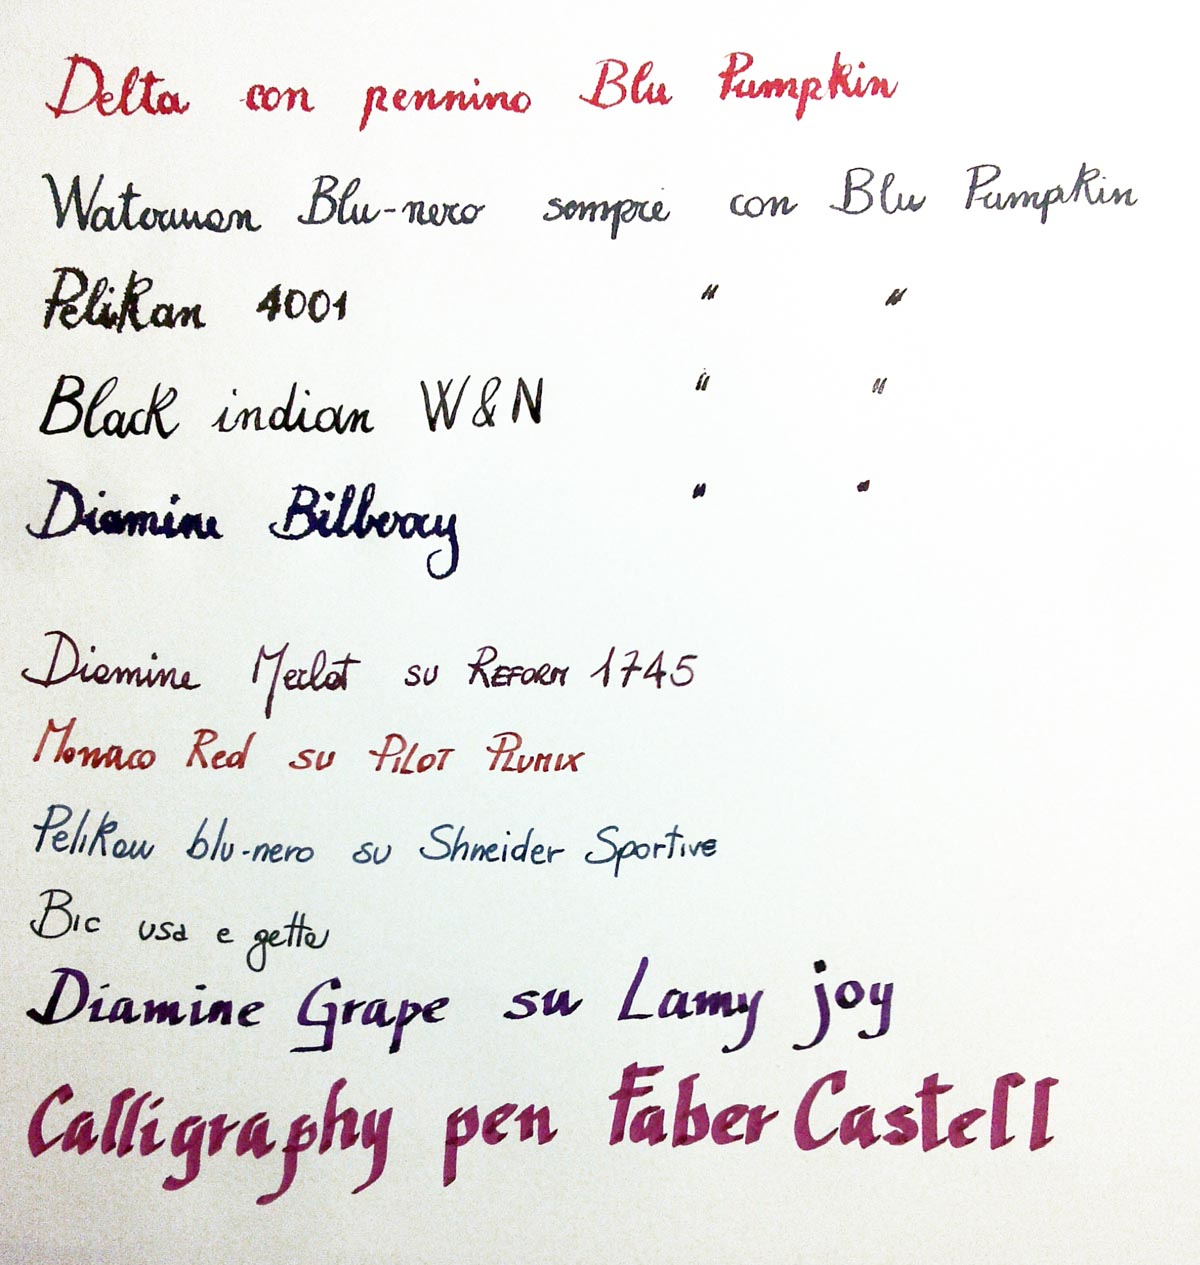 Delta con pennino Blu Pumpkin
Waterman Blu-nero sempre con Blu Pumpkin
Pelikan 4001 " "
Black indian W&N " "
Diamine Bilberry " "
Diamine Merlot su REFORM 1745
Monaco Red su PILOT PLUMIX
Pelikan blu-nero su Shneider Sportive
Bic usa e getta
Diamine Grape su Lamy joy
Calligraphy pen Faber Castell